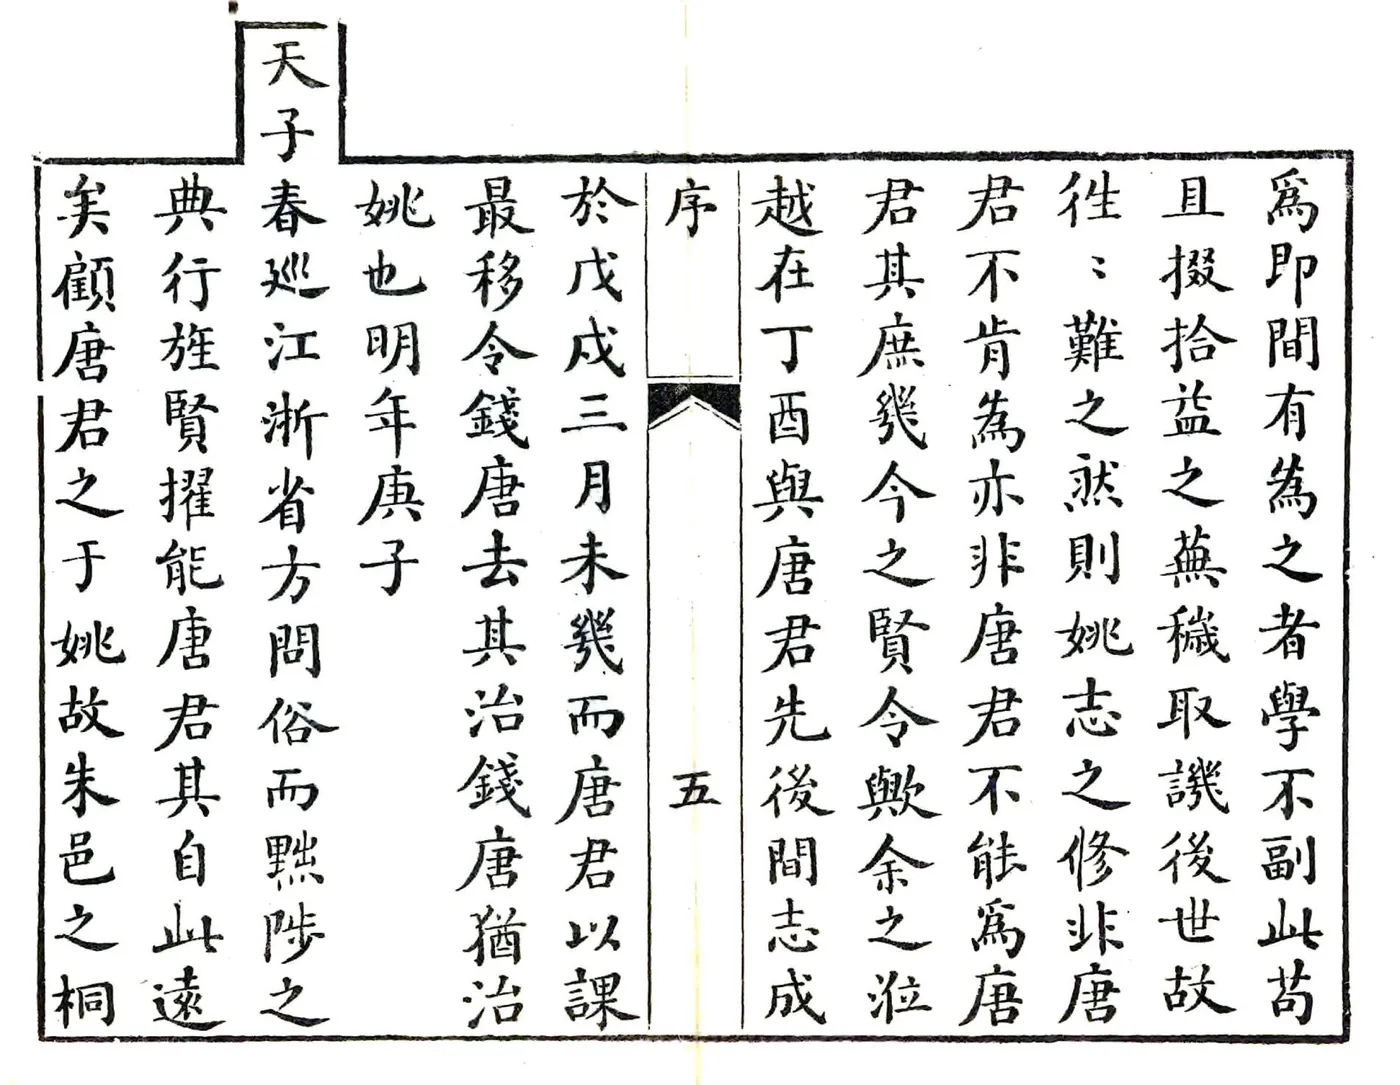 爲即間有為之者學不副此苟
且掇拾益之蕪穢取譏後世故
徃〻難之然則姚志之修非唐
君不肯為亦非唐君不能爲唐
君其庶幾今之賢令歟余之涖
越在丁酉與唐君先後間志成
序 五
於戊戌三月未幾而唐君以課
最移令錢唐去其治錢唐猶治
姚也明年庚子
天子
春巡江浙省方問俗而黜陟之
典行旌賢擢能唐君其自此遠
矣顧唐君之于姚故朱邑之桐